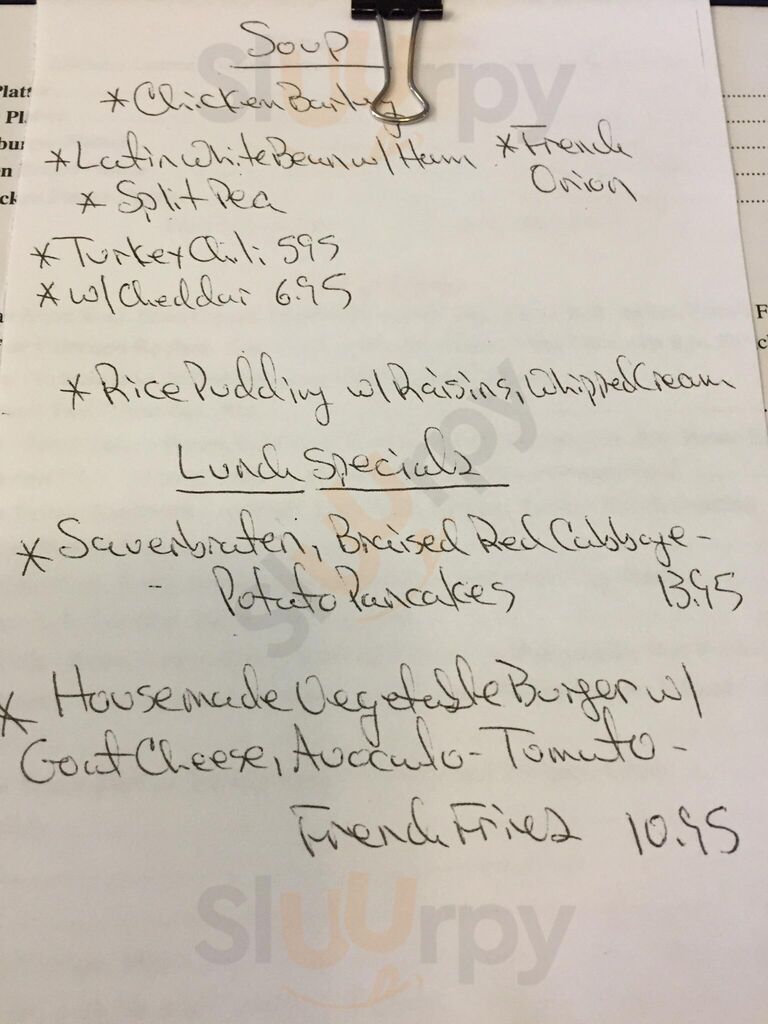 Soup
* Chicken Barley
* Latin White Bean w/ Ham
* French
Onion
* Split Pea
* Turkey Chili 595
* w/ Cheddar 6.95
* Rice Pudding w/ Raisins, Whipped Cream
Lunch Specials
* Sauerbraten, Braised Red Cabbage -
- Potato Pancakes 13.95
* Housemade Vegetable Burger w/
Goat Cheese, Avocado - Tomato -
French Fries 10.95
Sluurpy
Sluurpy
Sluurpy